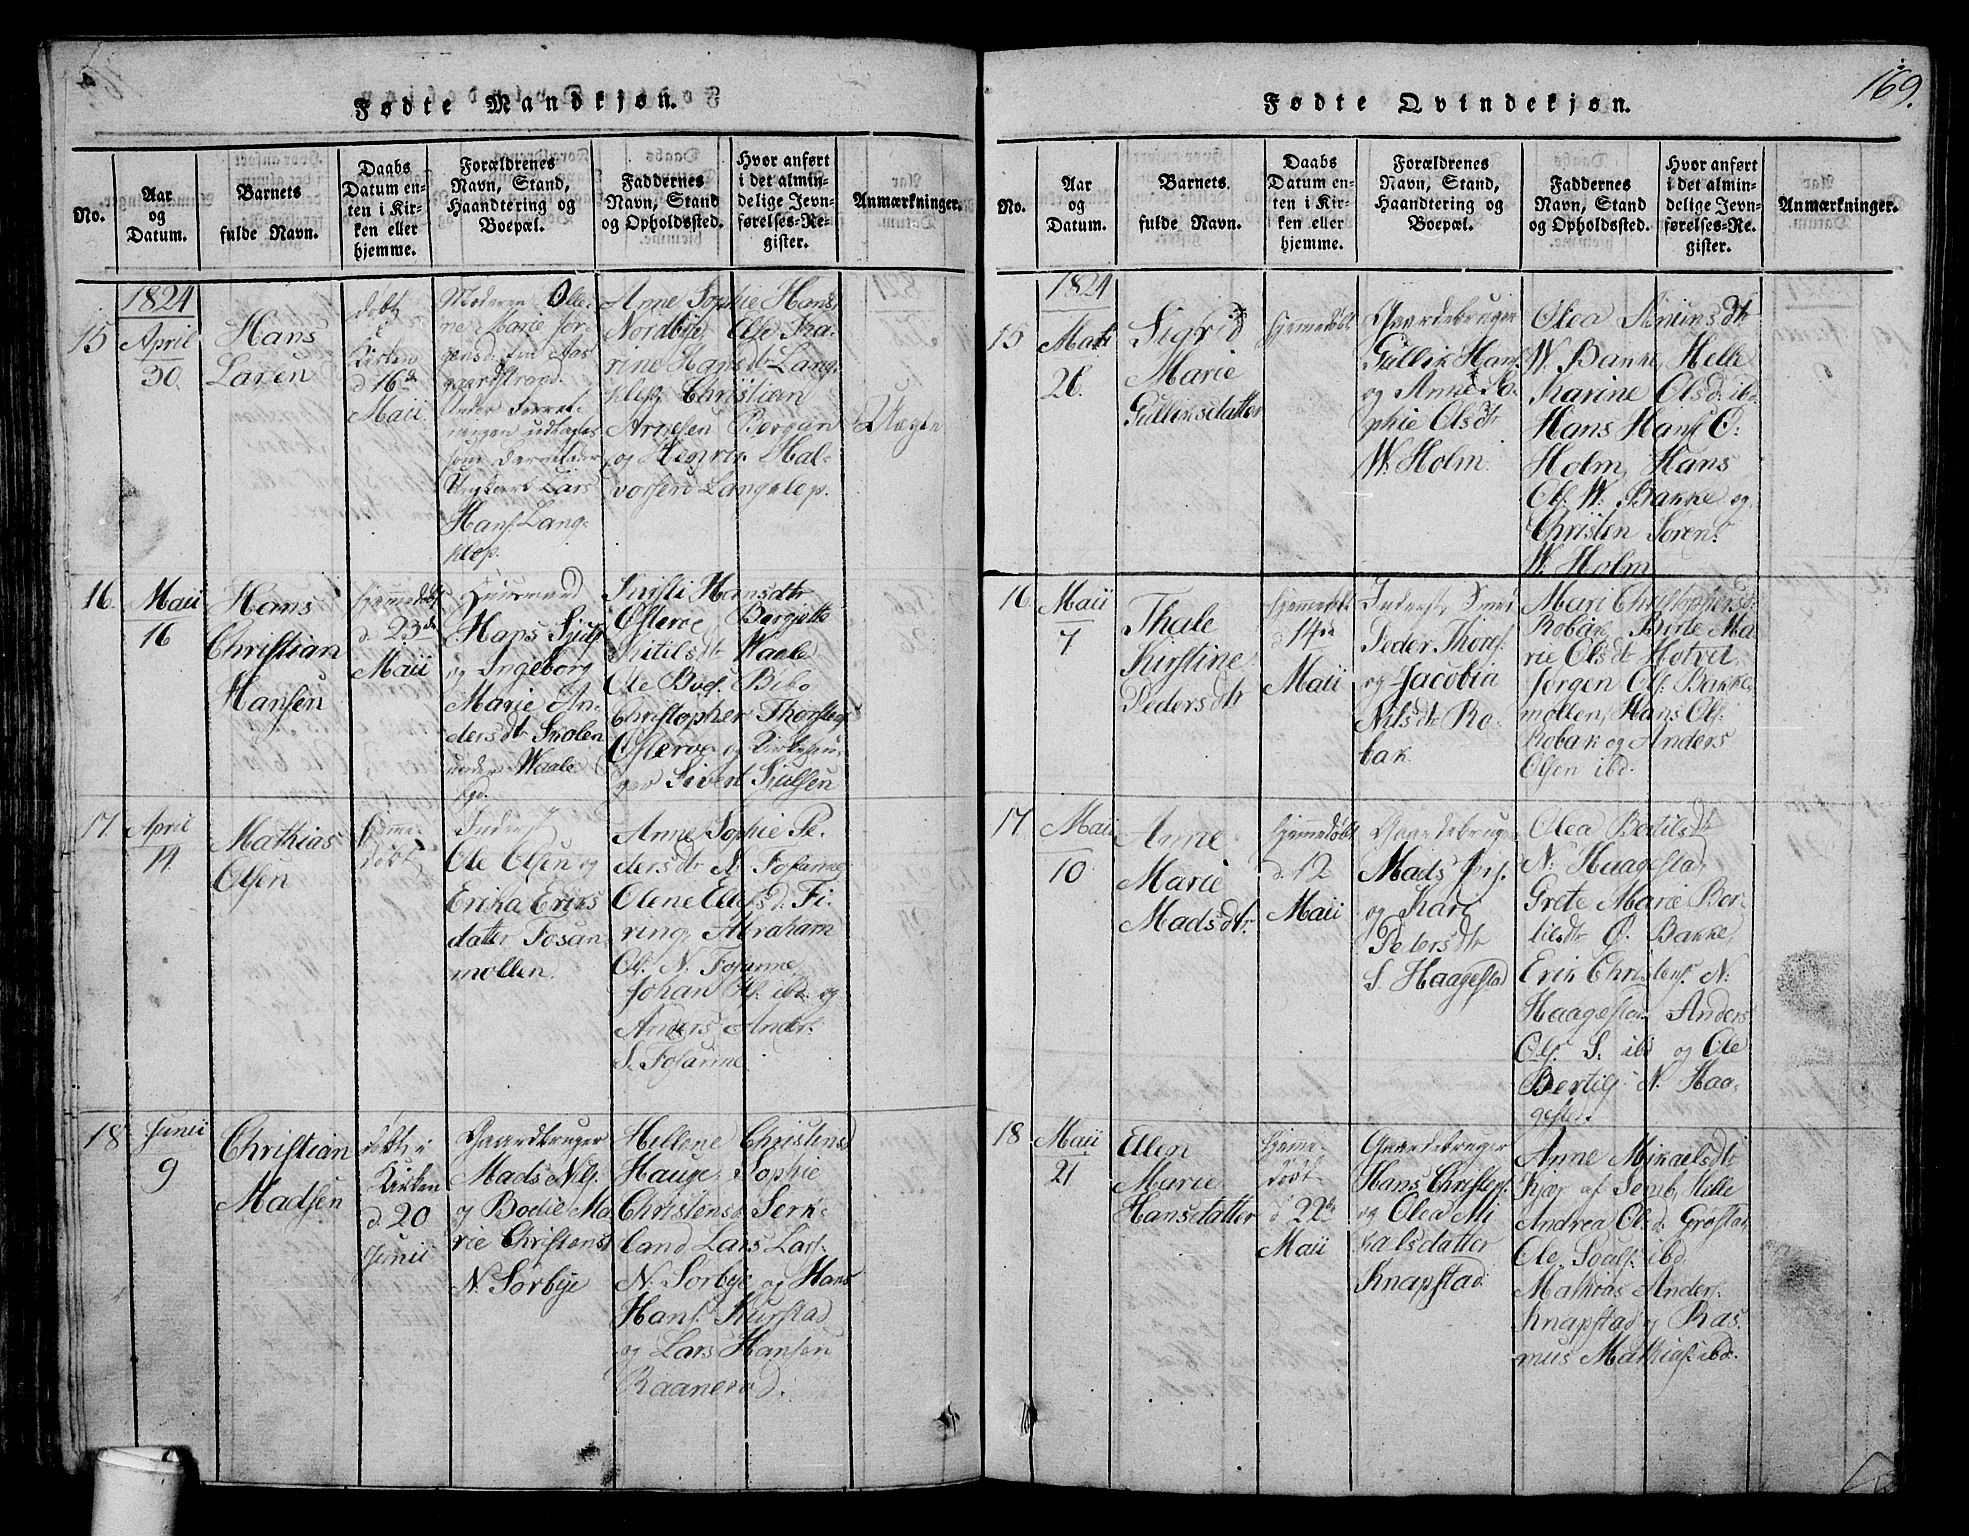 169.
Fødte Mandkjøn.
No.
Aar
og
Datum.
Barnets
fulde Navn.
Daabs
Datum en-
ten i Kir-
ken eller
hjemme.
Forældrenes
Navn, Stand,
Haandtering og
Boepæl.
Faddernes
Navn, Stand
og Opholdssted.
Hvor anført
i det almin-
delige Jevn-
førelses-Re-
gister.
Anmærkninger.
15
1824
April
30.
Hans
Larsen
døbt
i
Kirken
d 16de
Maii
Moderen Olle-
ne Marie Jør-
gensd.
Lars
Hans. Lang-
klep.
Anne Sophie Hans
Nordbye Else Ka-
rine Hansdr Lang-
klep, Christian
Arnesen Bergan
og Henrik Hal-
vorsen Langklep.
Uægte
16.
Maii
16
Hans
Christian
Hansen
hjemmedøbt
d. 23de
Maii
Huusmand
Hans Juls.
og Ingeborg
Marie An-
dersdtr Skolen
under Waale
Kirsti Hansdtr
Osteroe Bergjette
Kitilsdtr Waale
Ole
Christopher Thorstens.
Osteroe og
Sivert Julsen
17.
April
14.
Mathias
Olsen
hjemme-
døbt
Inderst
Ole Olsen og
Erika Eriks
datter Fosan
møllen.
Anne Sophie Pe-
dersdtr N. Fosanne
Olene Elefsd. Fi-
ring, Abraham
Ols. N. Fosanne
Johan Ols. ibd. og
Anders Anders.
S. Fosanne.
18
Junii
9
Christian
Madsen
døbt i
Kirken
d. 20
Junii
Gaardbruger
Mads Nils.
og Bodil Ma
rie Christensd
N. Sørbye
Hellene Christensd
Hauge, Sophie
Christensd Serk-
land Lars Lars.
N. Sørbye og Hans
Hans. Kurstad
og Lars Hansen
Raanerød.
Fødte Qvindekjøn.
No.
Aar
og
Datum.
Barnets.
fulde Navn.
Daabs
Datum en-
ten i Kir-
ken eller
hjemme.
Forældrenes
Navn, Stand,
Haandtering og
Boepæl.
Faddernes
Navn, Stand
og Opholdssted.
Hvor anført
i det almin-
delige Jevn-
førelses-Re-
gister.
Anmærkninger.
15
1824
26.
Sigrid
Marie
Gulliksdatter
hjemmedøbt
Gaardbruger
Gullik Hans.
og Anne So-
phie Olsdtr
W. Holm.
Olea Simensdtr
W. Bakke, Helle
Karine Olsd. ibd.
Hans Hans. Ø.
Holm, Hans
Ols. W. Bakke og
Christen Sorens.
W. Holm
16
Maii
7
Thale
Kirstine
Pedersdtr
hjemmedøbt
d 14de
Maii
Inderst,
Peder Thors.
og Jacobia
Nilsdtr Ro-
bak
Mari Christophersd.
Robak, Birte Ma-
rie Olsdtr Hotvet
Jørgen Ols. Bakke-
møllen, Hans Ols.
Robak og Anders
Olsen ibd.
17
Maii
10
Anne
Marie
Madsdtr.
hjemmedøbt
d. 12
Maii
Gaardbruger
Mads Jørs.
og Kari
Pedersdtr
S Haagestad
Olea Bertilsdtr
N. Haagestad,
Grete Marie Ber-
tilsdtr Ø. Bakke,
Erik Christens. N.
Haagestad Anders
Ols. S. ibd og Ole
Bertils. N. Haa-
gestad.
18
Maii
21
Ellen
Marie
Hansdatter
hjemme-
døbt
d 22de
Maii
Gaardbruger
Hans Christens.
og Olea Mi
kalsdatter
Knapstad
Anne Mikaelsdtr
Kjær af Semb, Helle
Andrea Olsd. Grøstad
Ole Ibd
Mathias Anders.
Knapstad og Ras
mus Mathias. ibd.